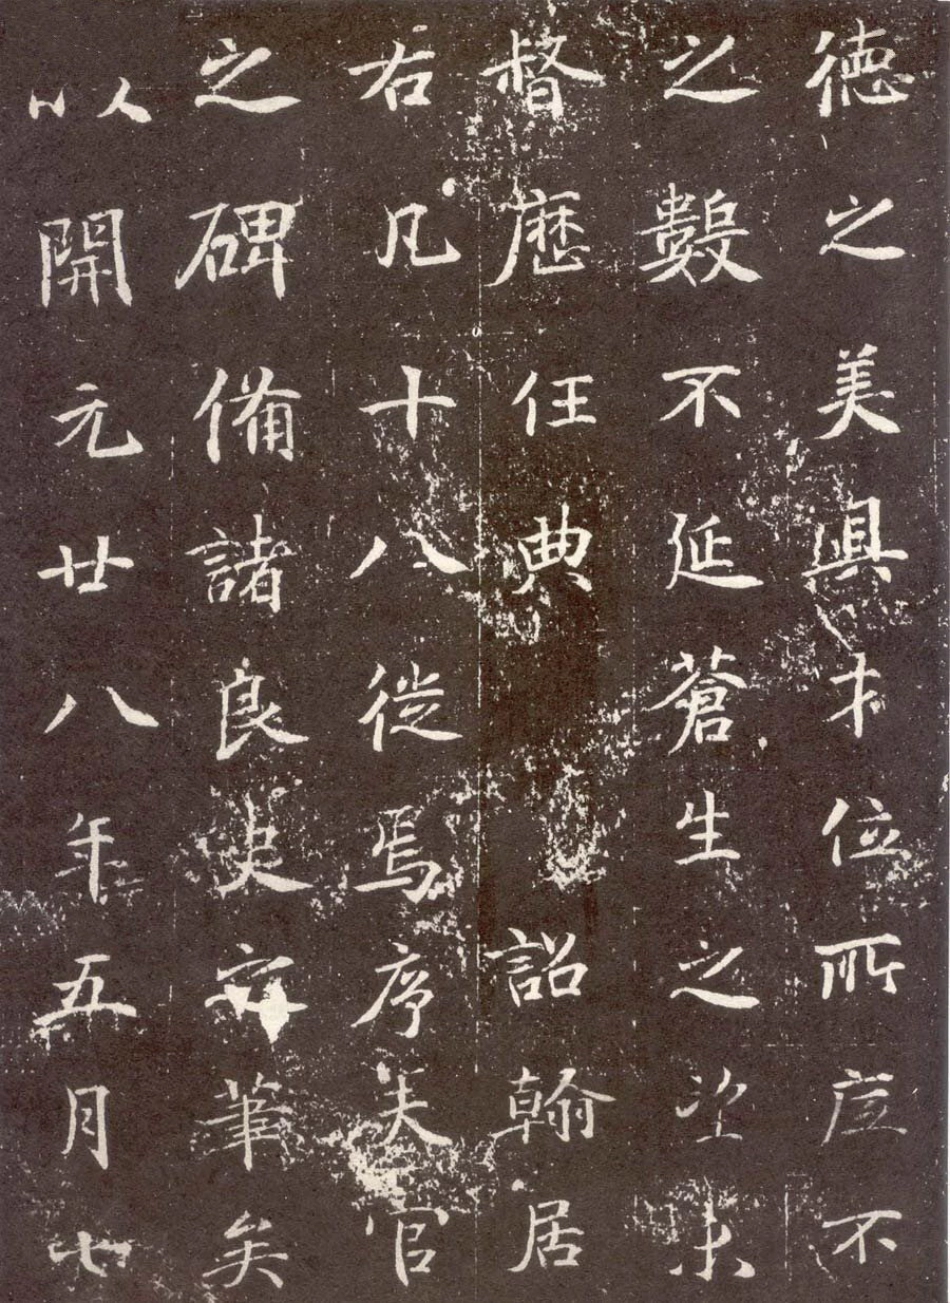 德之美才位所不
之數不延蒼生之望未
督歷任典詔翰居
右凡十八徙焉序官
之碑備諸良史筆矣
以開元廿八年五月七